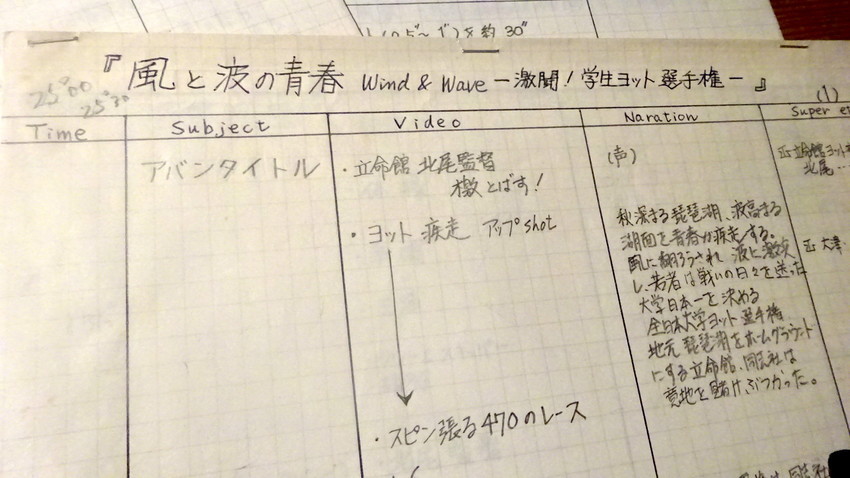 (0'5"~1') を 約 30"
『風と波の青春 Wind & Wave ー激闘！学生ヨット選手権ー』
25'00
25'30
(1)
Time
Subject
Video
Naration
Super
アバンタイトル
・立命館 北尾監督
檄とばす！
・ヨット 疾走 アップshot
・スピン張る470のレース
(声)
秋深まる琵琶湖、波高まる
湖面を青春が疾走する。
風に翻ろうされ 波に激突
し、若者は戦いの日々を送った
大学日本一を決める
全日本大学ヨット選手権
地元 琵琶湖をホームグラウンド
にする立命館、同志社は
意地を賭けぶつかった。
立命館ヨット
北尾…
大津・